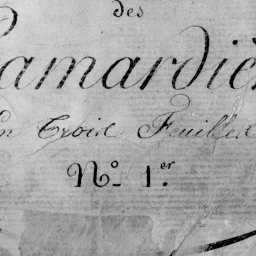 des
Lamardiè
En Croix Feuilles
N.º 1.er